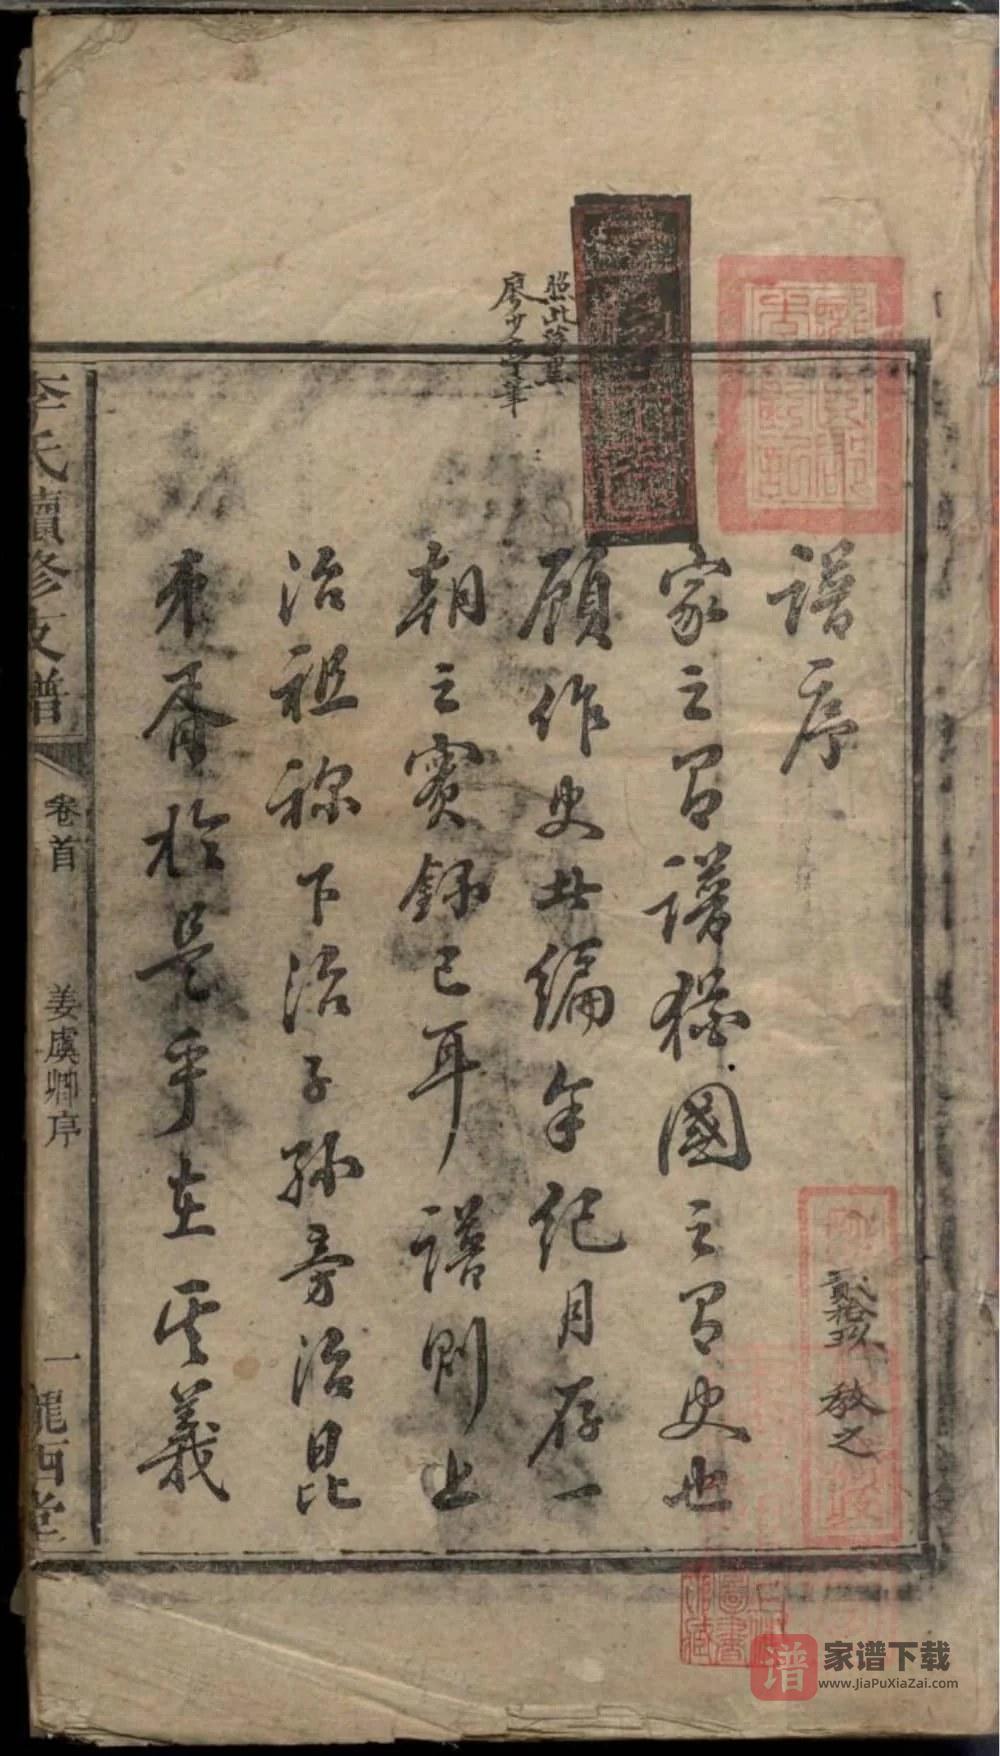 譜序
家之有譜猶國之有史也
顧作史者編年紀月存一
朝之實録已耳譜則上
治祖祢下治子孫旁治昆
弟胥於是乎在其義
李氏續修支譜
卷首
姜虞卿序
一
隴西堂
貳拾玖
教之
照此
廖少
筆
家谱下载
www.JiaPuXiaZai.com
谱